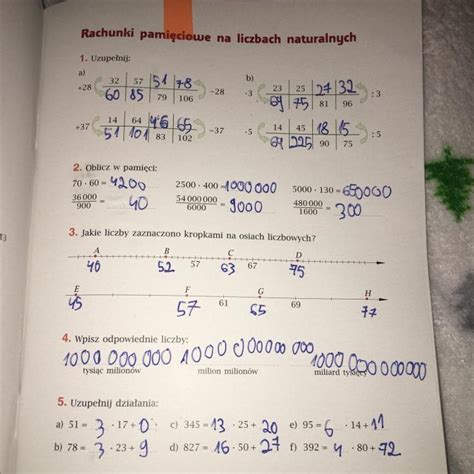 Rachunki pamięciowe na liczbach naturalnych
1. Uzupełnij:
a) b)
+28 32 57 51 78 −28
60 85 79 106
·3 23 25 27 32 :3
69 75 81 96
+37 14 64 46 65 −37
51 101 83 102
·5 14 45 18 15 :5
225 90 75
2. Oblicz w pamięci:
70 · 60 = 4200 2500 · 400 = 1000 000 5000 · 130 = 650000
36 000 / 900 = 40 54 000 000 / 6000 = 9000 480 000 / 1600 = 300
3. Jakie liczby zaznaczono kropkami na osiach liczbowych?
A B C D
40 52 57 63 67 75
E F G H
45 57 61 65 69 77
4. Wpisz odpowiednie liczby:
1000 000 000 1000 000 000 000 1000 000 000 000
tysiąc milionów milion milionów miliard tysięcy
5. Uzupełnij działania:
a) 51 = 3 · 17 + 0 c) 345 = 13 · 25 + 20 e) 95 = 6 · 14 + 11
b) 78 = 3 · 23 + 9 d) 827 = 16 · 50 + 27 f) 392 = 4 · 80 + 72